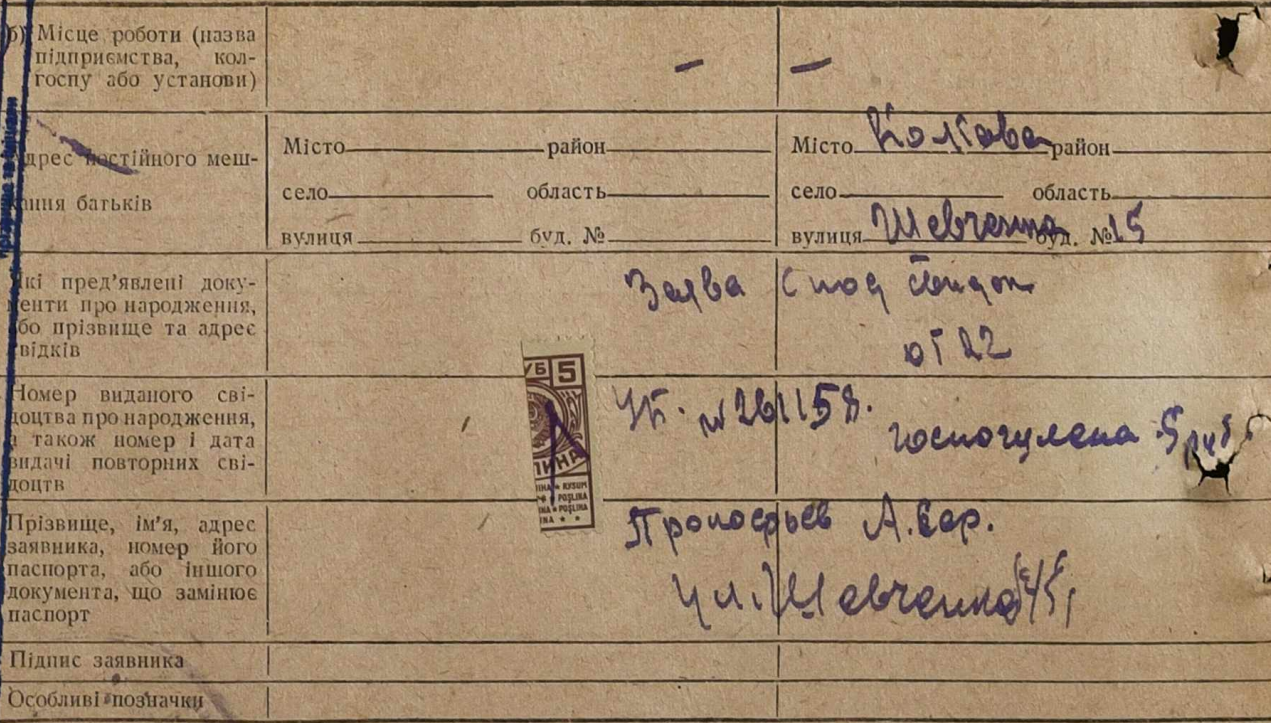 б) Місце роботи (назва
підприємства, кол-
госпу або установи)
— —
Адрес постійного меш-
кання батьків
Місто район
село область
вулиця буд. №
Місто район
село область
вулиця Шевченка буд. № 15
Які пред'явлені доку-
менти про народження,
або прізвище та адрес
свідків
Заява
от 22
Номер виданого сві-
доцтва про народження,
а також номер і дата
видачі повторних сві-
доцтв
УБ 5
№ 261158.
5 руб
Прізвище, ім'я, адрес
заявника, номер його
паспорта, або іншого
документа, що замінює
паспорт
Прокофьев А.
ул. Шевченко
Підпис заявника
Особливі позначки